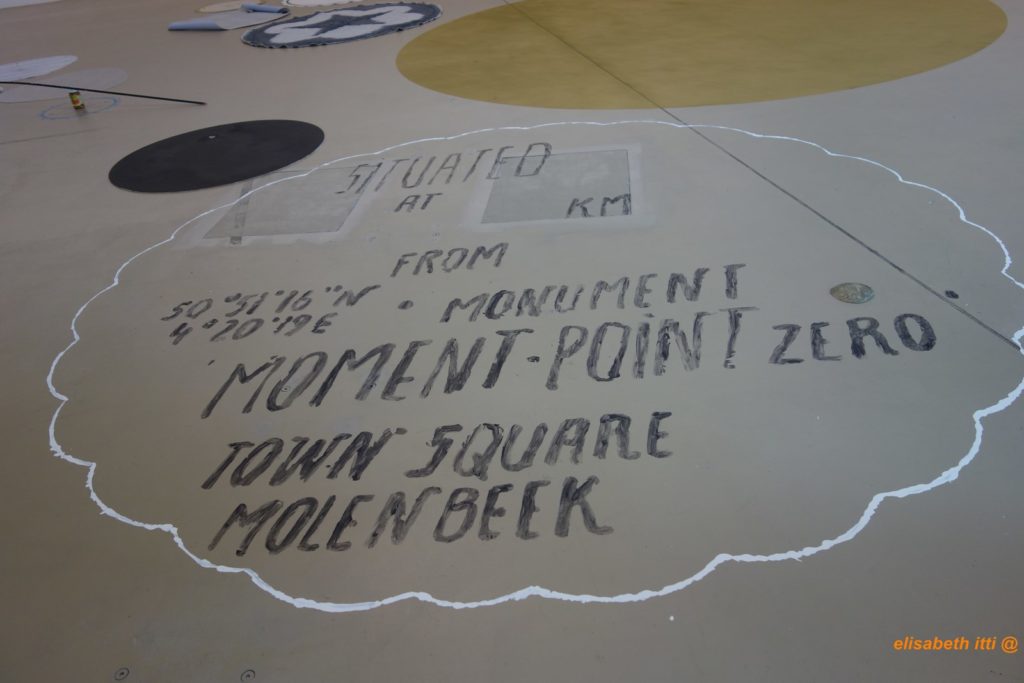 SITUATED
AT KM
FROM
50°51'16"N
4°20'19E
• MONUMENT
MOMENT-POINT ZERO
TOWN SQUARE
MOLENBEEK
elisabeth itti @